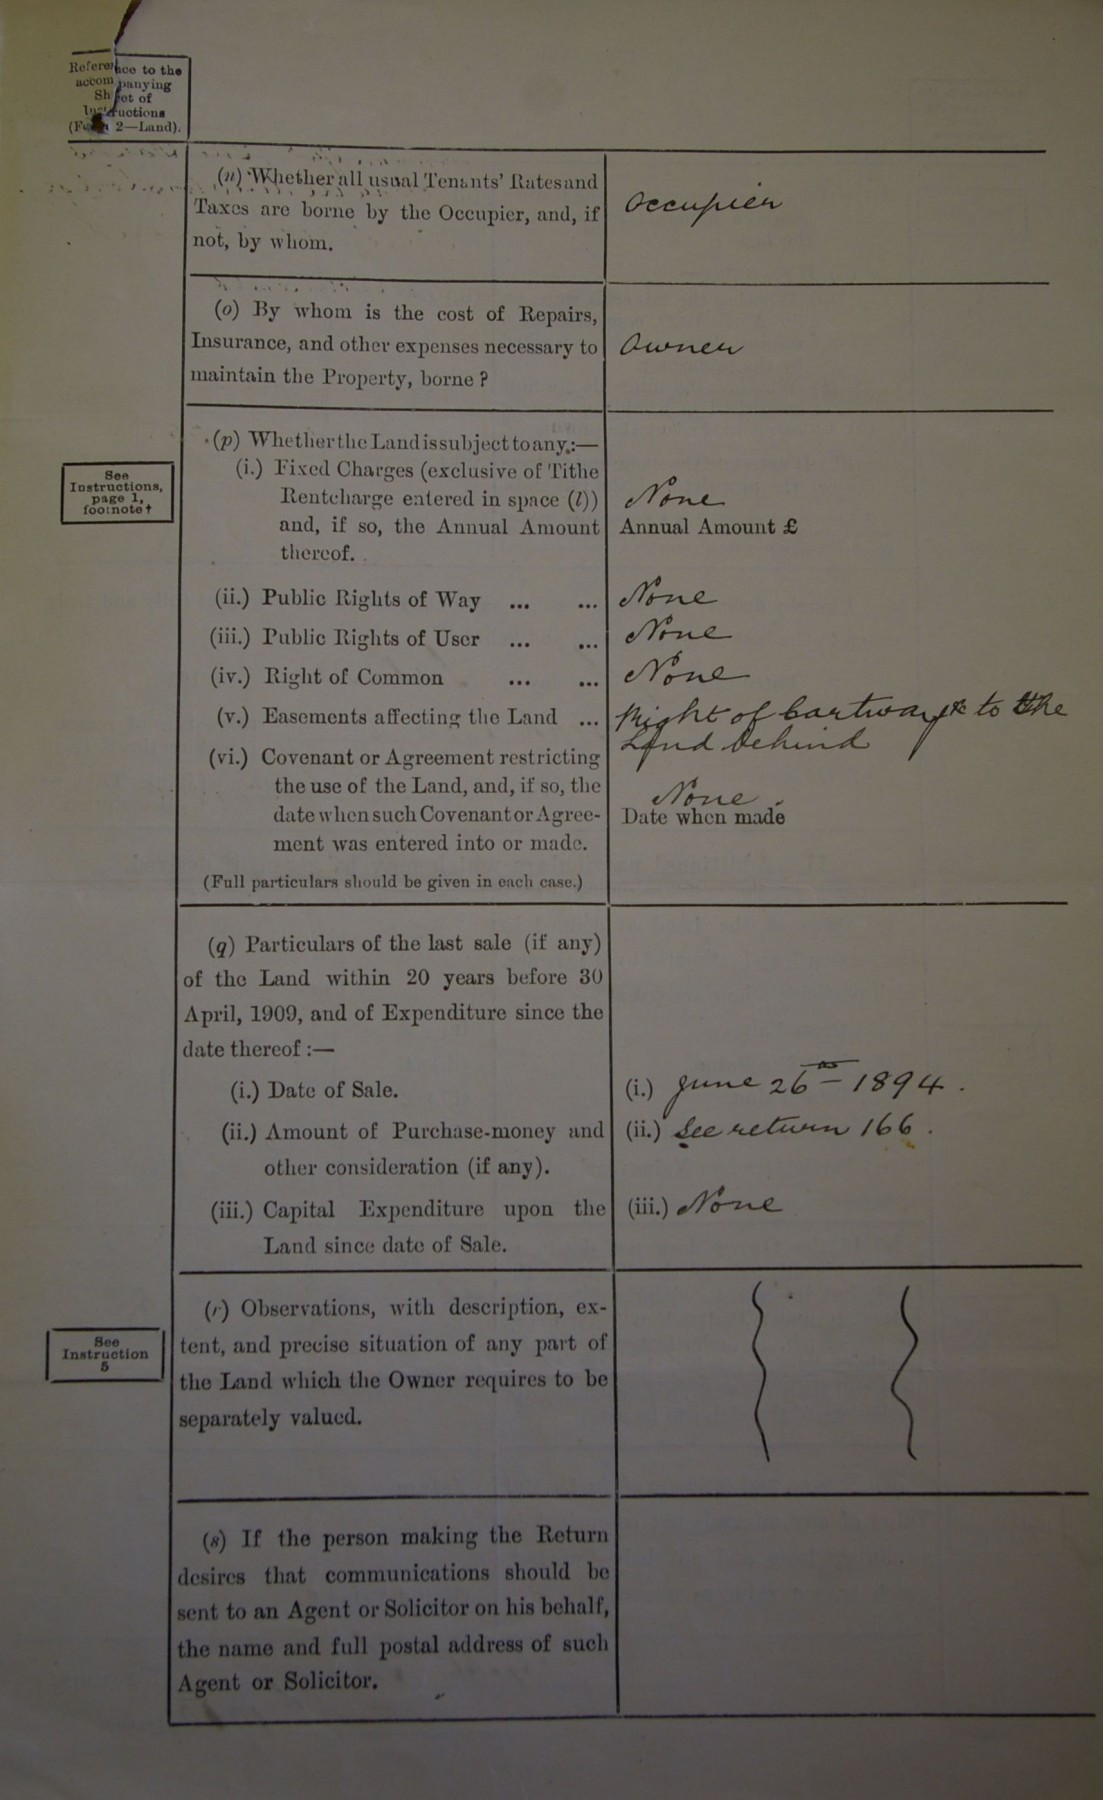 Reference to the
accompanying
Sheet of
Instructions
(Form 2—Land).
(n) Whether all usual Tenants' Rates and
Taxes are borne by the Occupier, and, if
not, by whom.
Occupier
(o) By whom is the cost of Repairs,
Insurance, and other expenses necessary to
maintain the Property, borne ?
Owner
See
Instructions,
page 1,
footnote †
(p) Whether the Land is subject to any :—
(i.) Fixed Charges (exclusive of Tithe
Rentcharge entered in space (l))
and, if so, the Annual Amount
thereof.
None
Annual Amount £
(ii.) Public Rights of Way ... ...
None
(iii.) Public Rights of User ... ...
None
(iv.) Right of Common ... ...
None
(v.) Easements affecting the Land ...
Right of Cartway to the
Land behind
(vi.) Covenant or Agreement restricting
the use of the Land, and, if so, the
date when such Covenant or Agree-
ment was entered into or made.
None
Date when made
(Full particulars should be given in each case.)
(q) Particulars of the last sale (if any)
of the Land within 20 years before 30
April, 1909, and of Expenditure since the
date thereof :—
(i.) Date of Sale.
(i.) June 26th – 1894.
(ii.) Amount of Purchase-money and
other consideration (if any).
(ii.) See return 166.
(iii.) Capital Expenditure upon the
Land since date of Sale.
(iii.) None
See
Instruction
5
(r) Observations, with description, ex-
tent, and precise situation of any part of
the Land which the Owner requires to be
separately valued.
(s) If the person making the Return
desires that communications should be
sent to an Agent or Solicitor on his behalf,
the name and full postal address of such
Agent or Solicitor.